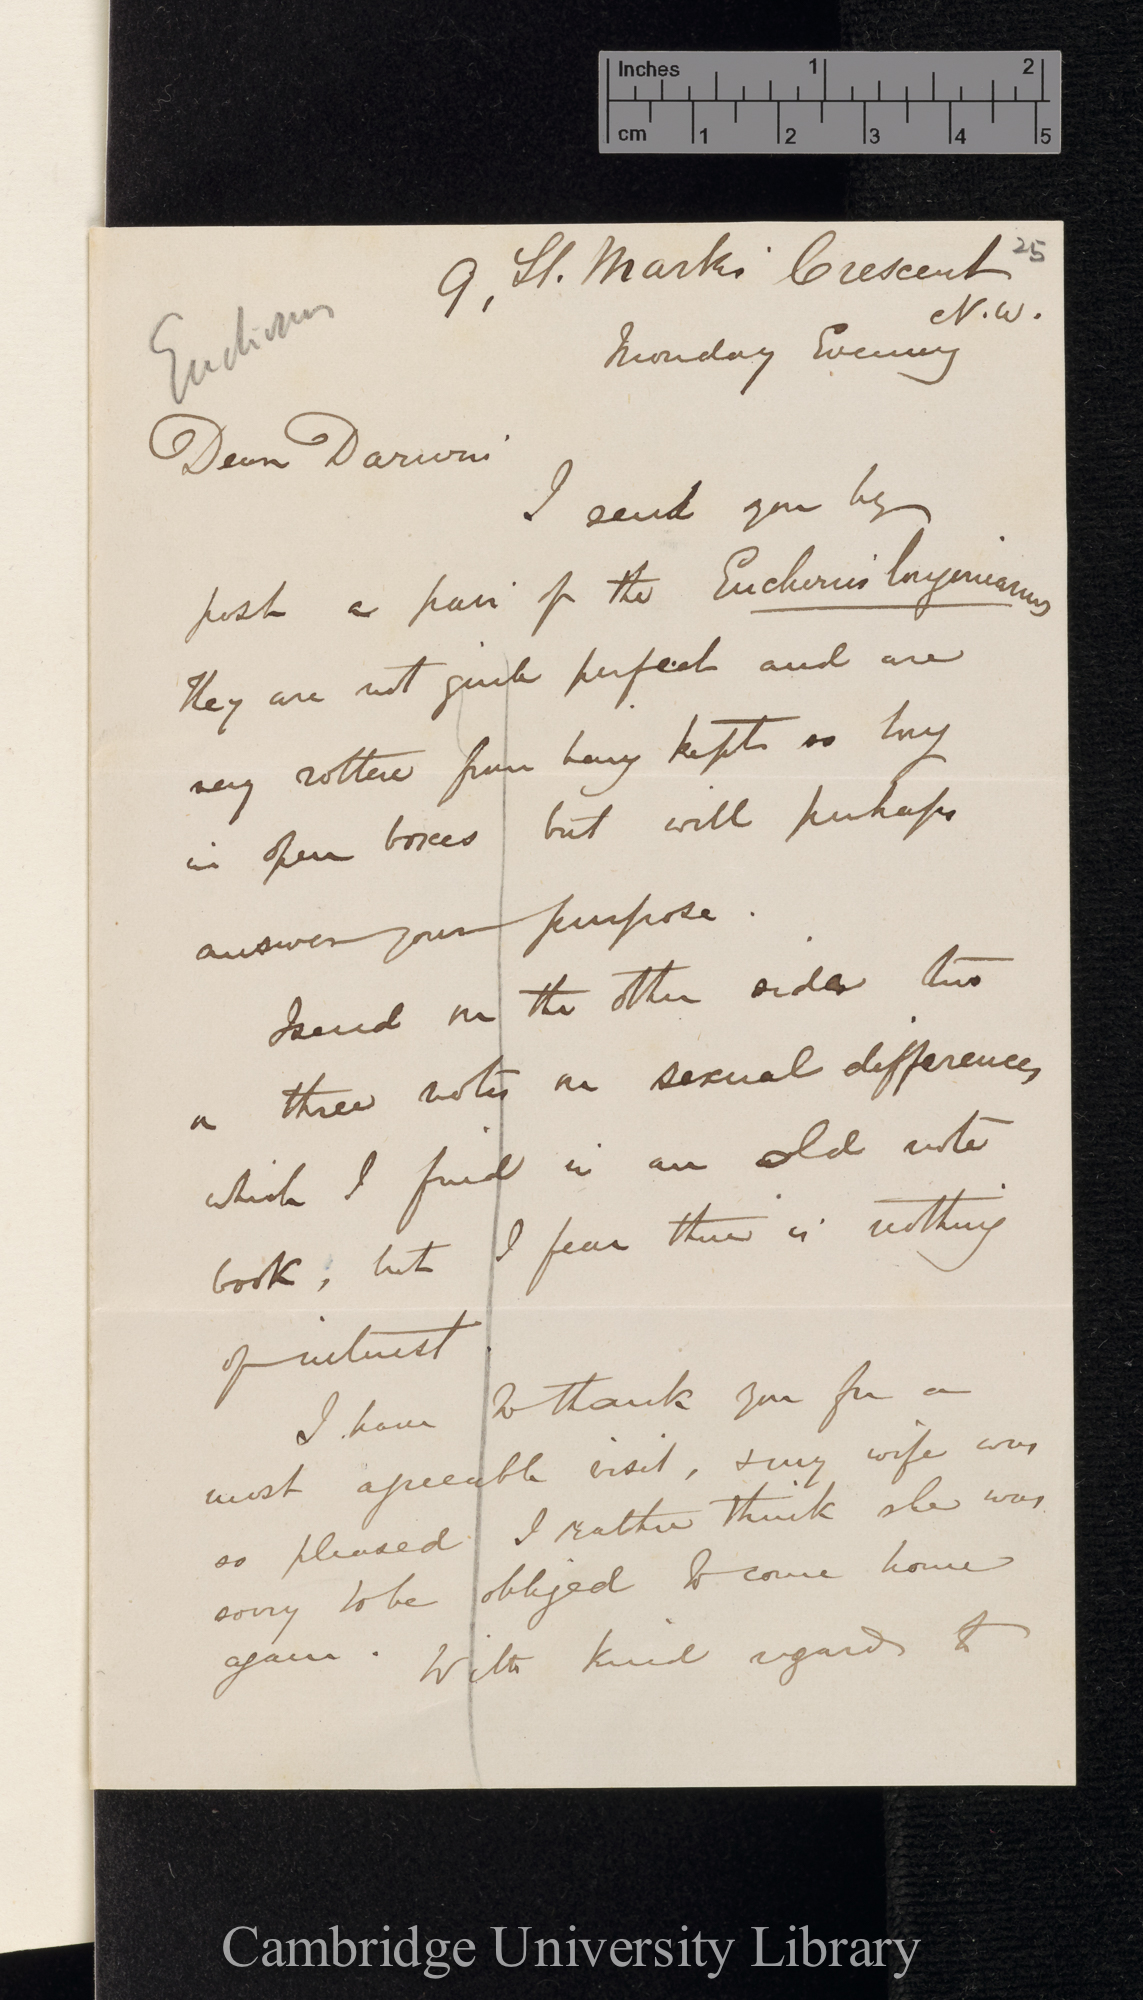 Inches 1 2
cm 1 2 3 4 5
25
9, St. Mark's Crescent
N.W.
Monday Evening
Dear Darwin
I send you by
post a pair of the
They are not quite perfect and are
very rotten from being kept so long
in open boxes but will perhaps
answer your purpose.
I send on the other sides two
or three notes on sexual differences
which I find in an old note
book, but I fear there is nothing
of interest.
I have to thank you for a
most agreeable visit, & my wife was
so pleased I rather think she was
sorry to be obliged to come home
again. With kind regards to
Cambridge University Library